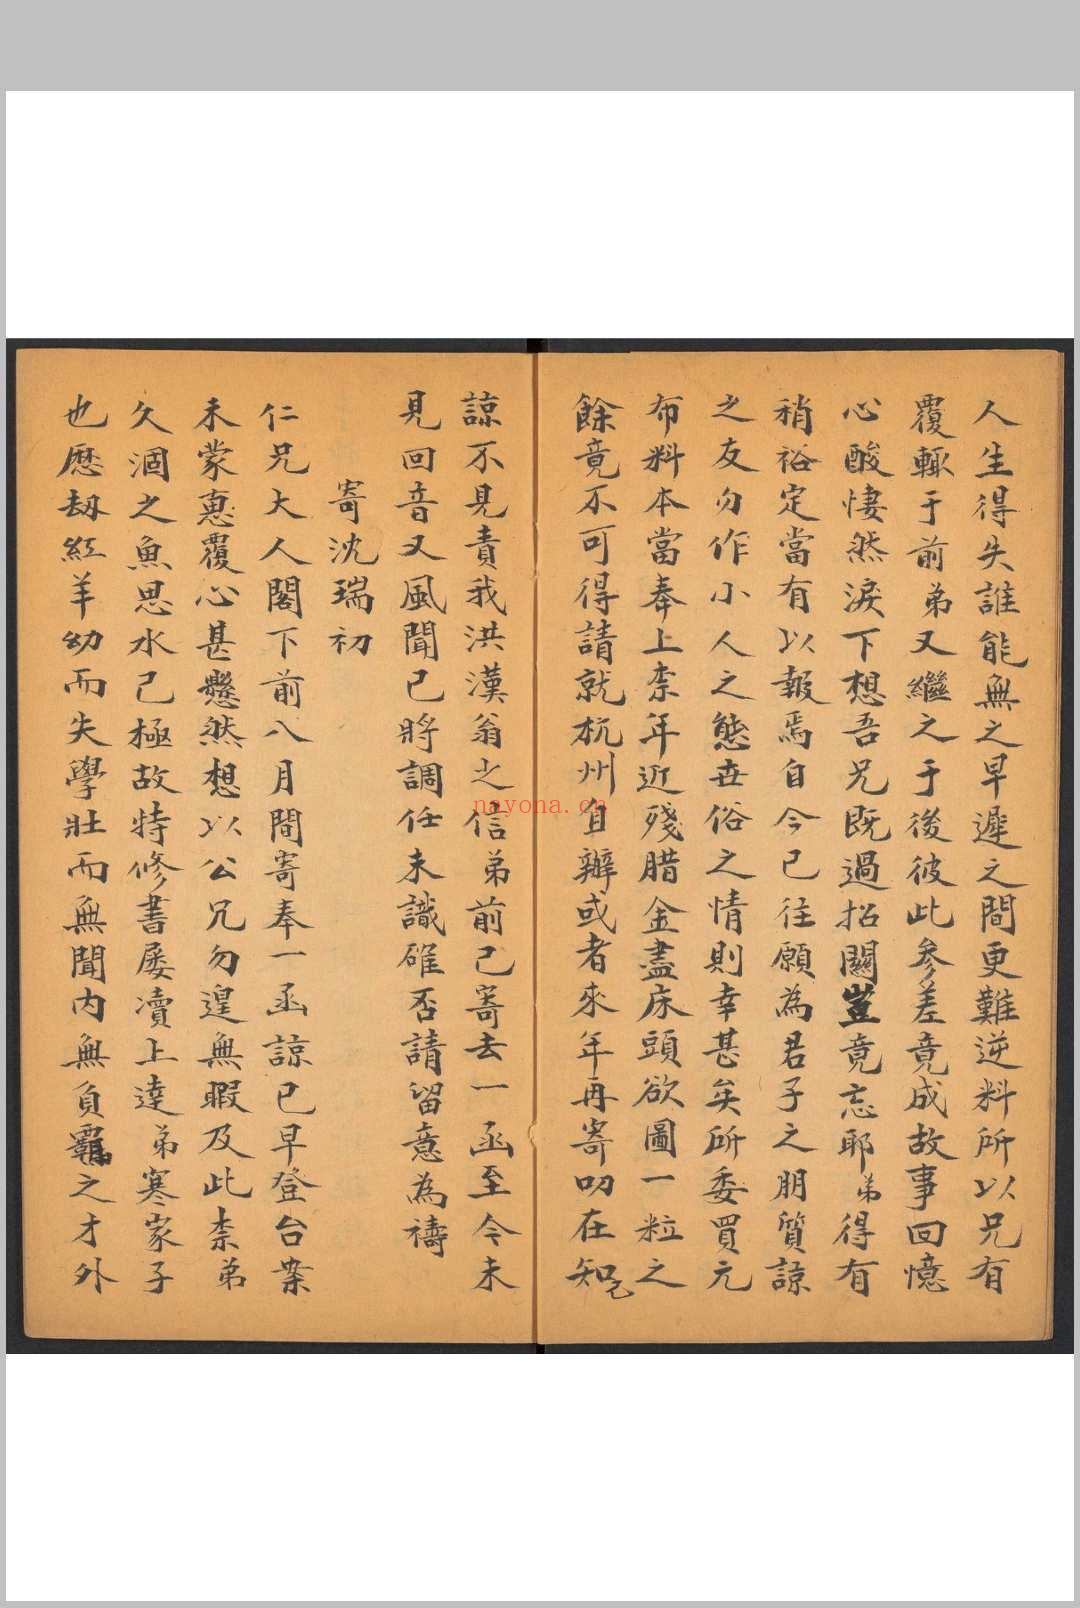 人生得失誰能無之早遲之間更難逆料所以兄有
覆轍于前弟又繼之于後彼此參差竟成故事回憶
心酸悽然淚下想吾兄既過招關豈竟忘耶弟得有
稍裕定當有以報焉自今已往願為君子之朋質諒
之友勿作小人之態世俗之情則幸甚矣所委買元
布料本當奉上柰年近殘腊金盡床頭欲圖一粒之
餘竟不可得請就杭州自辦或者來年再寄叨在知己
諒不見責我洪漢翁之信弟前已寄去一函至今未
見回音又風聞已將調任未識確否請留意為禱
寄沈瑞初
仁兄大人閣下前八月間寄奉一函諒已早登台案
未蒙惠覆心甚懸然想以公兄勿遑無暇及此柰弟
久涸之魚思水已極故特修書屡瀆上達弟寒家子
也歷劫紅羊幼而失學壯而無聞內無負羈之才外
nayona.cn